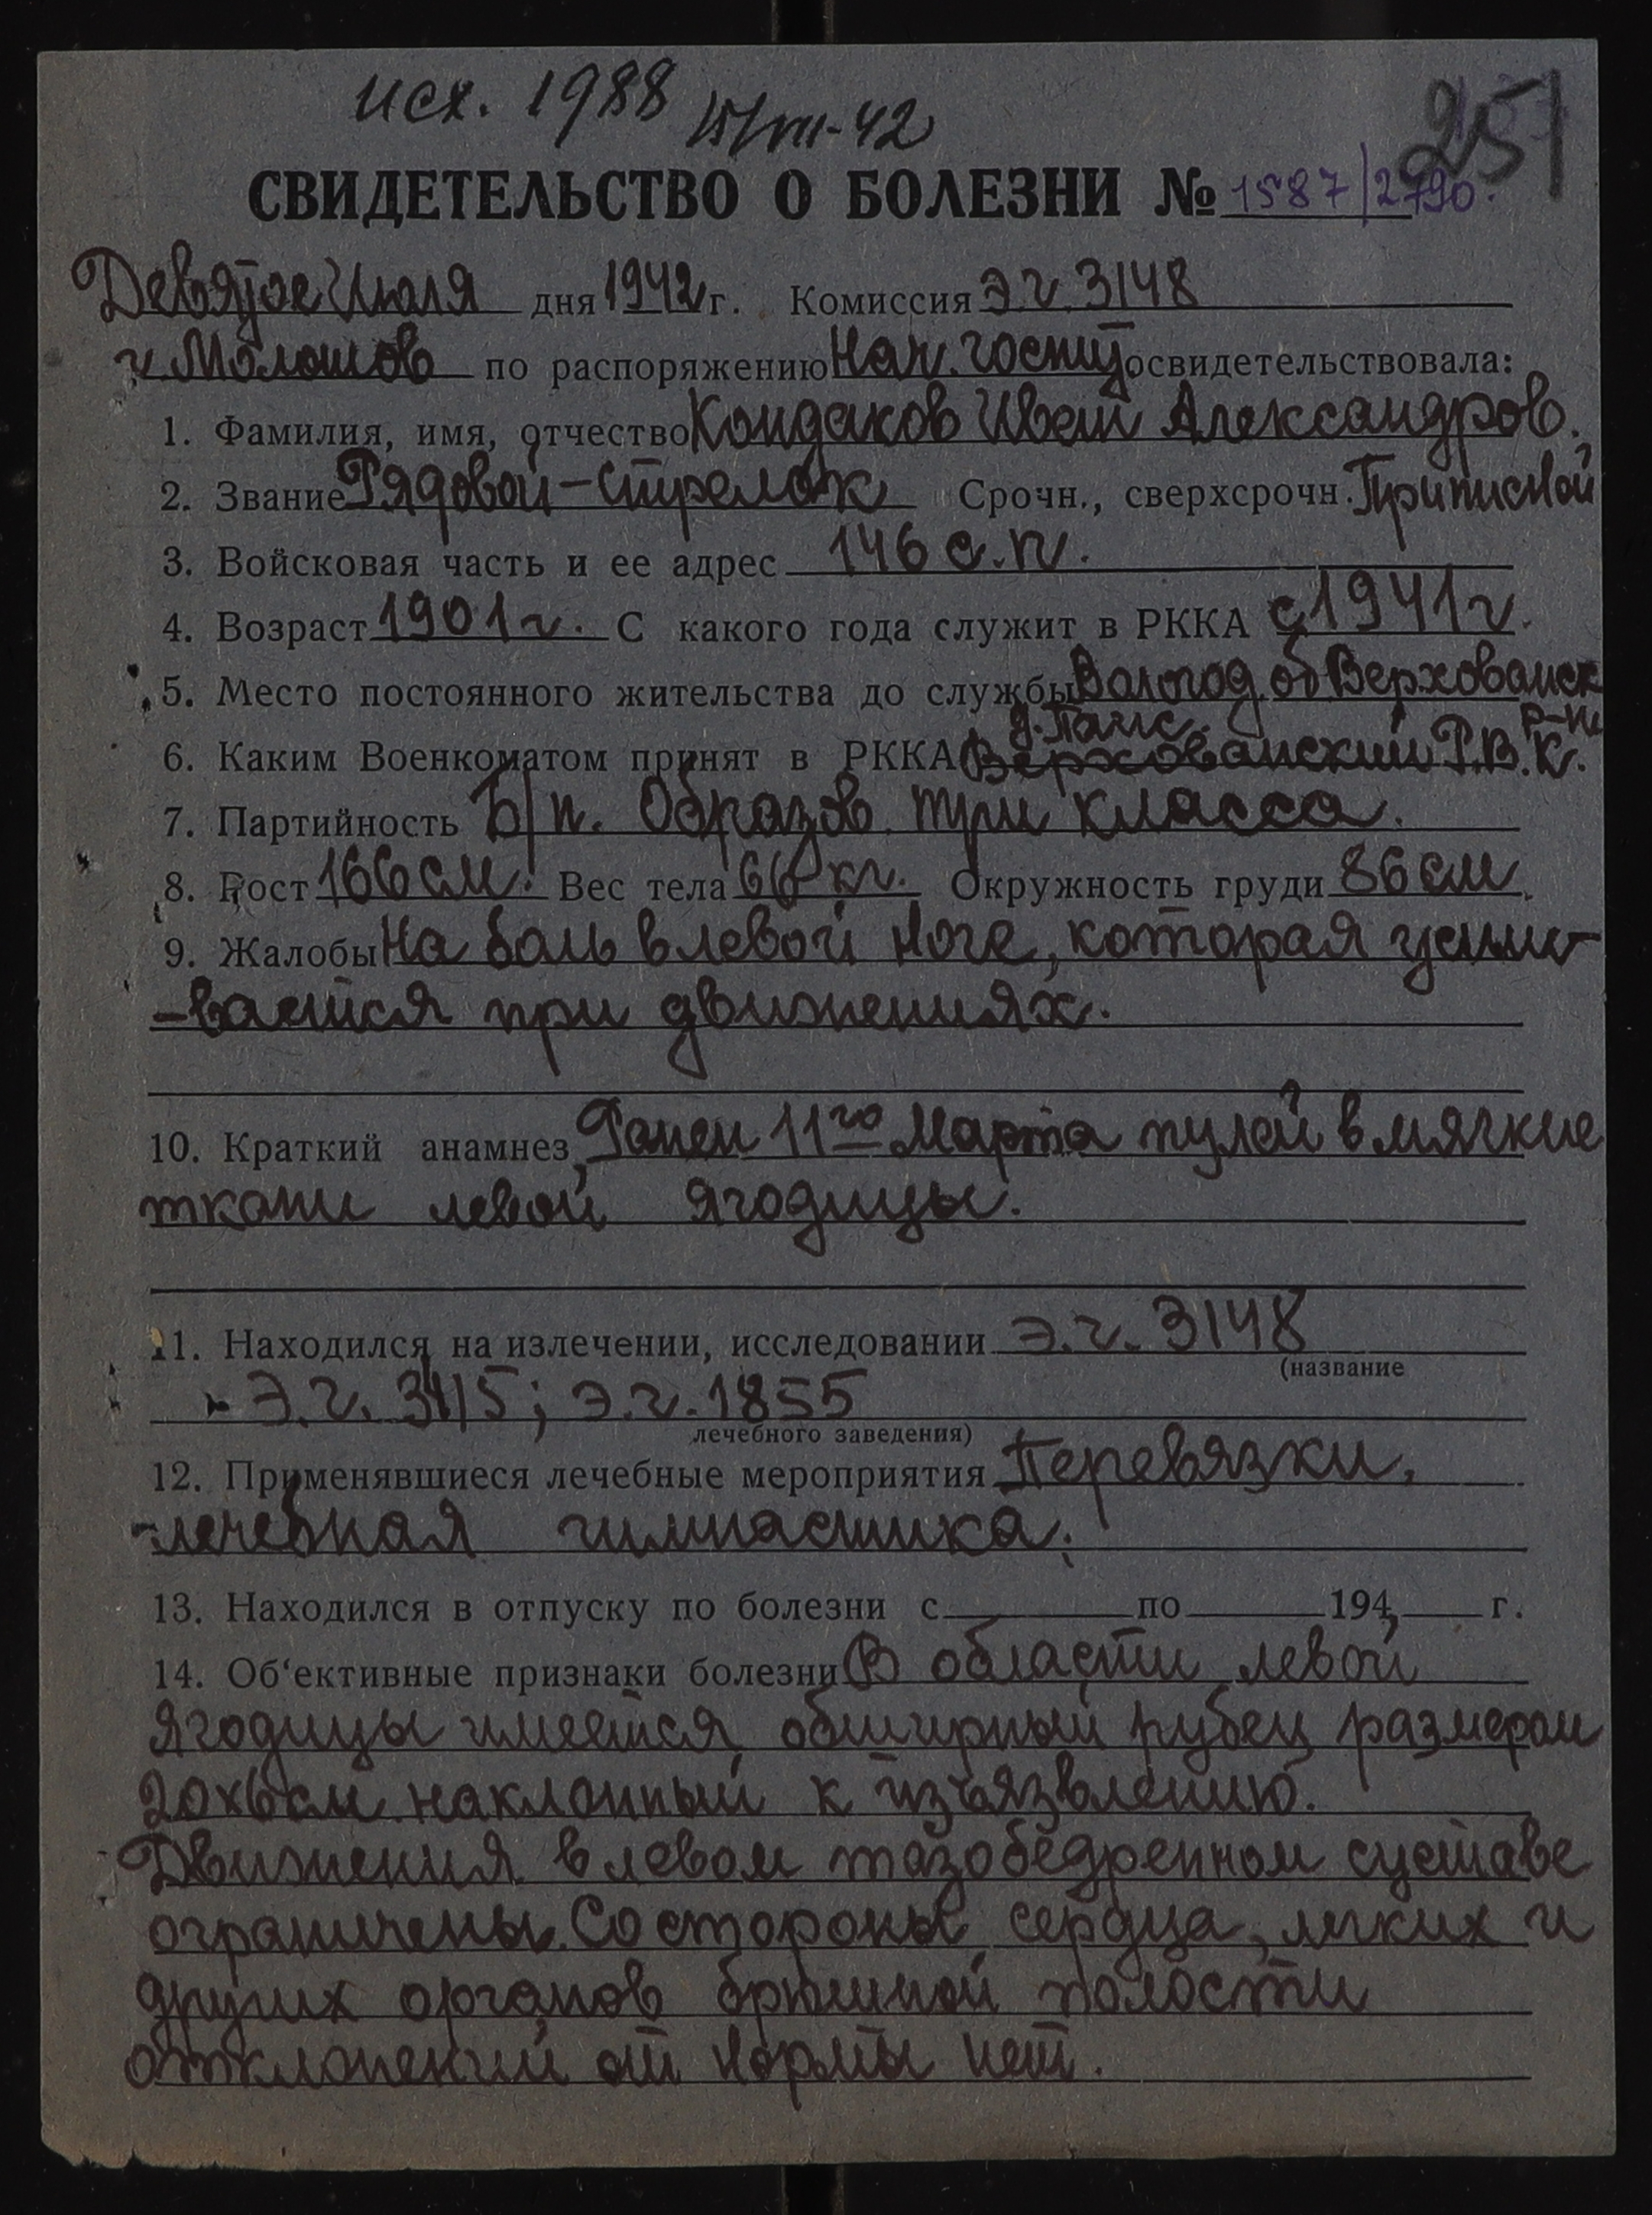 исх. 1988 15/VII-42
251
СВИДЕТЕЛЬСТВО О БОЛЕЗНИ № 1587/2790.
Девятое Июля дня 1942 г. Комиссия Э.г. 3148
г Молотов по распоряжению Нач. госпит освидетельствовала:
1. Фамилия, имя, отчество Кондаков Иван Александров.
2. Звание Рядовой-стрелок Срочн., сверхсрочн. Приписной
3. Войсковая часть и ее адрес 146 с.п.
4. Возраст 1901 г. С какого года служит в РККА с 1941 г.
5. Место постоянного жительства до службы Вологод. об Верховажск
р-н
6. Каким Военкоматом принят в РККА Верховажский Р.В.К.
7. Партийность Б/п. Образов. три класса.
8. Рост 166 см. Вес тела 66 кг. Окружность груди 86 см
9. Жалобы На боль в левой ноге, которая усили-
-вается при движениях.
10. Краткий анамнез Ранен 11го Марта пулей в мягкие
ткани левой ягодицы.
11. Находился на излечении, исследовании Э.г. 3148
(название
Э.г. 3415; Э.г. 1855
лечебного заведения)
12. Применявшиеся лечебные мероприятия Перевязки,
лечебная гимнастика.
13. Находился в отпуску по болезни с по 194 г.
14. Об'ективные признаки болезни В области левой
ягодицы имеется обширный рубец размером
20х6 см наклонный к изъязвлению.
Движения в левом тазобедренном суставе
ограничены. Со стороны сердца, легких и
других органов брюшной полости
отклонений от нормы нет.